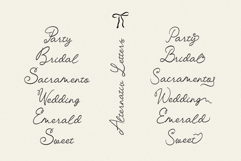 Party
Bridal
Sacramento
Wedding
Emerald
Sweet
Alternative Letters
Party
Bridal
Sacramento
Wedding
Emerald
Sweet